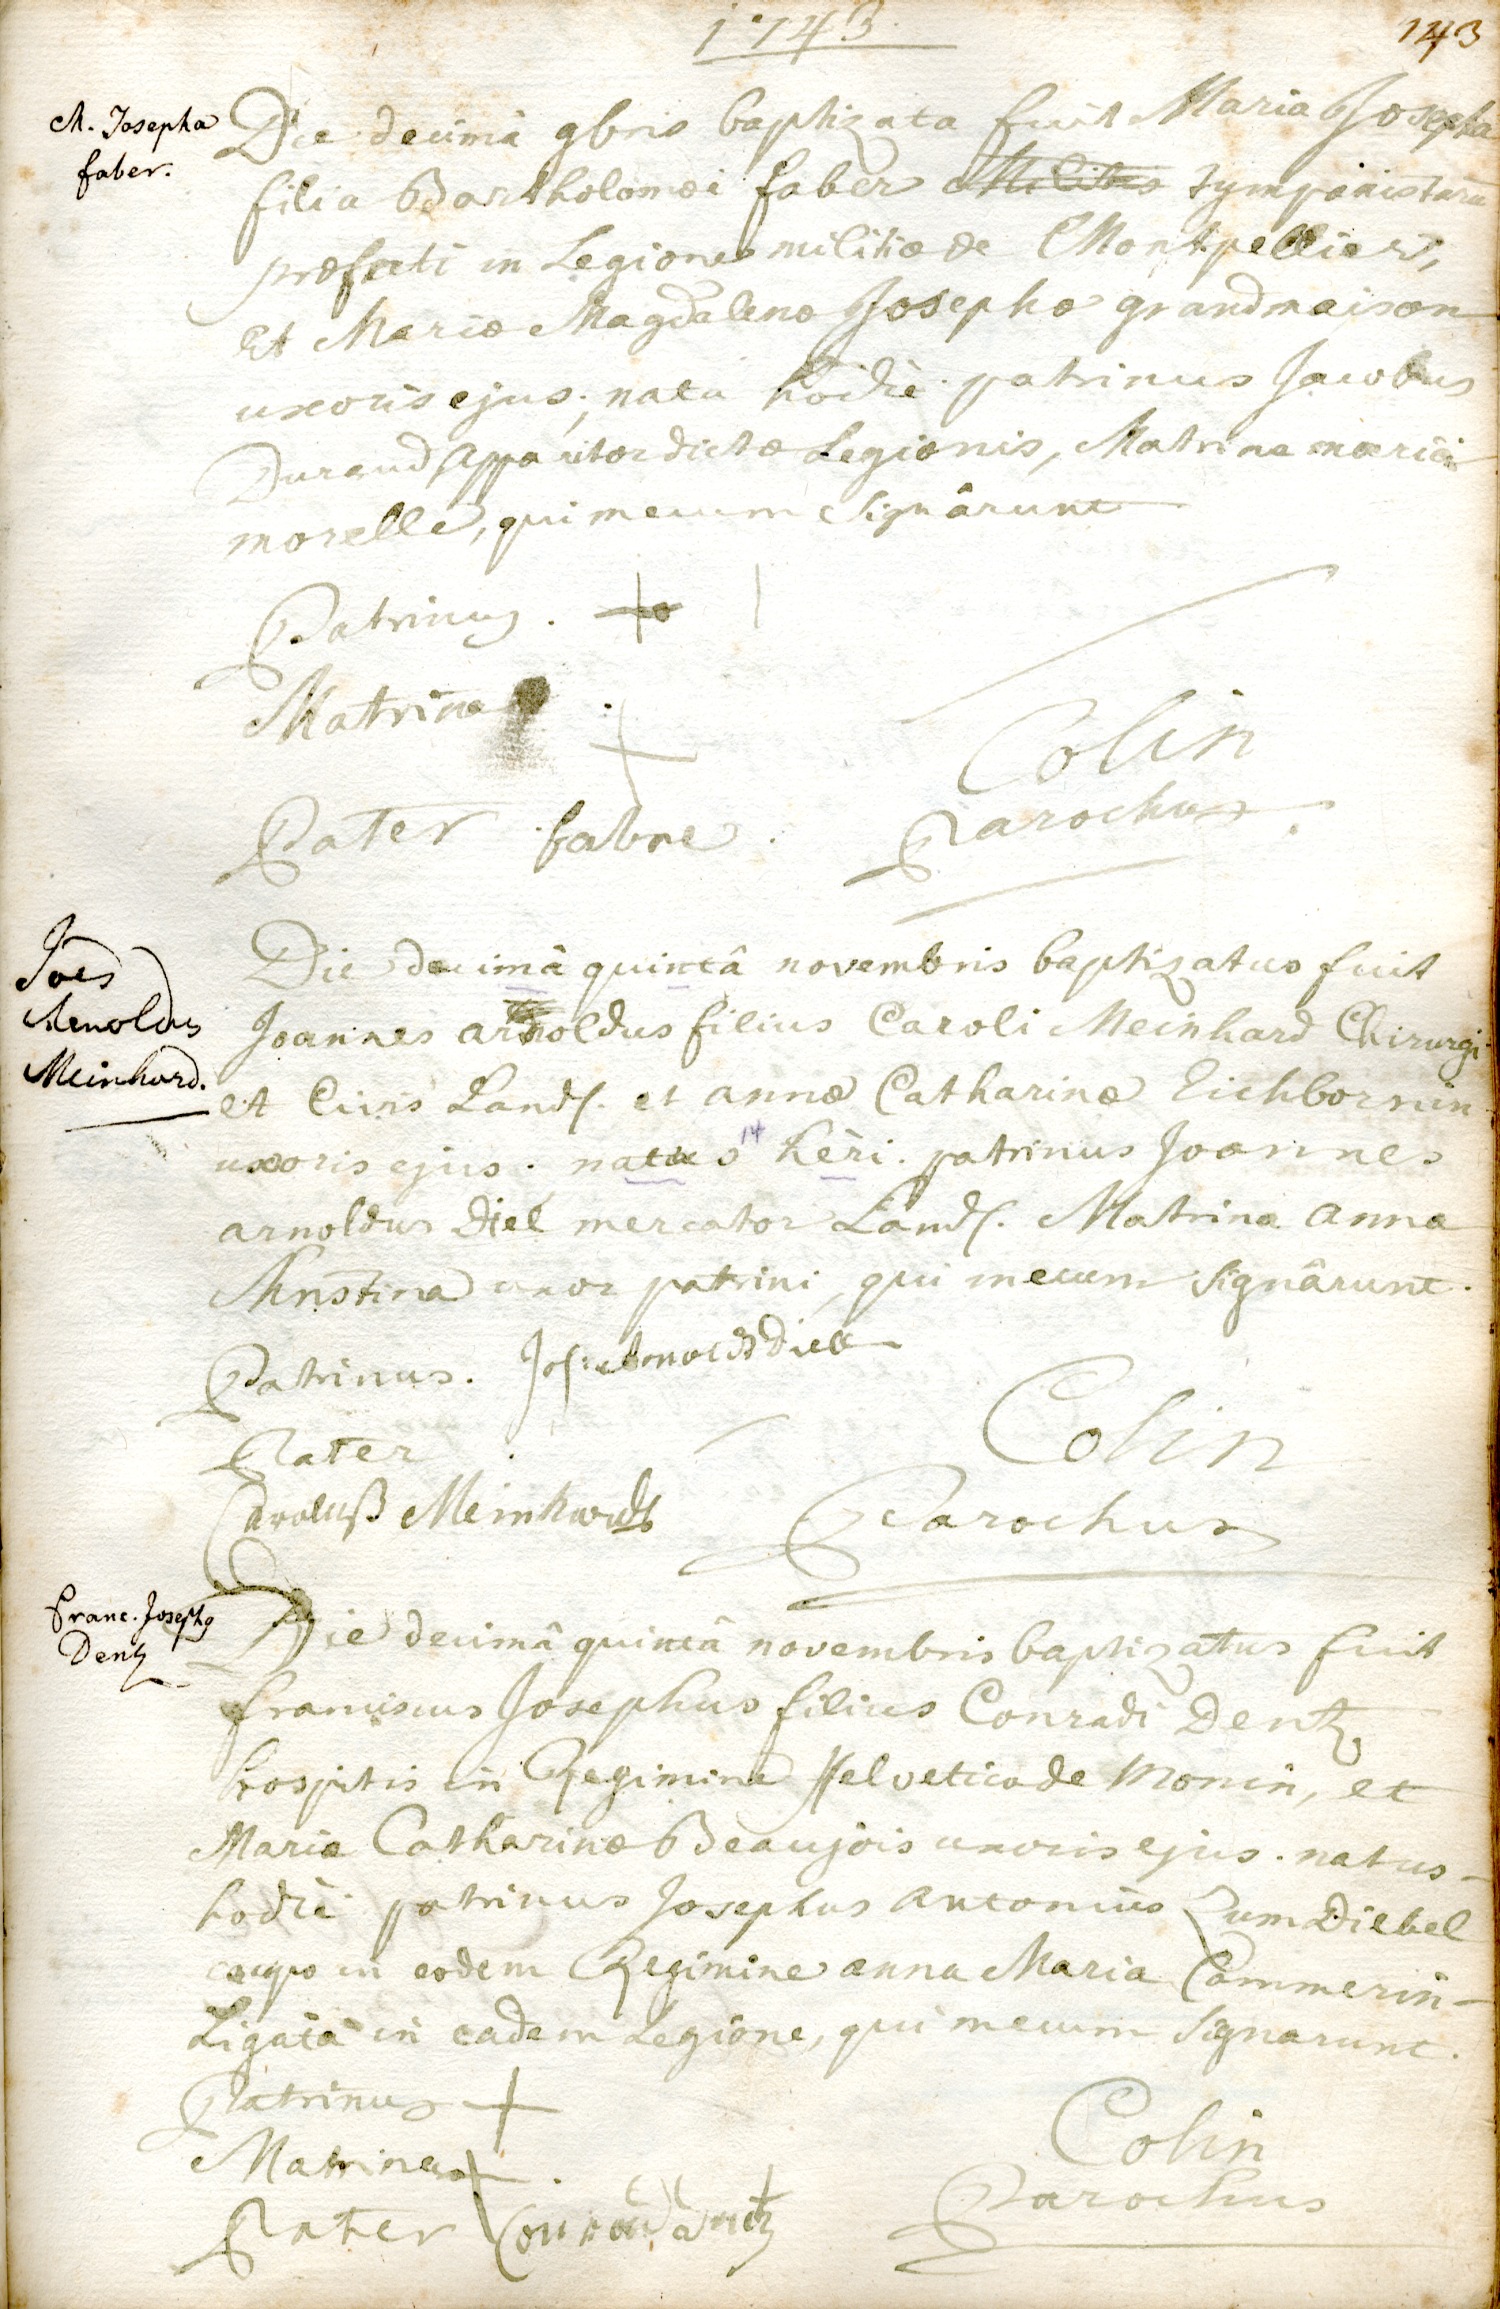 1743
143
M. Josepha
faber.
Die decimâ 9bris baptizata fuit Maria Josepha
filia Bartholomæi faber Militis tympanistarū
præfecti in Legione militiæ de Montpellier,
Et Mariæ Magdalenæ Josephæ grandmaison
uxoris ejus; nata hodiè. patrinus Jacobus
Durand Apparitor dictæ Legionis, Matrina maria
morelle, qui mecum signârunt
Patrinus. +
Matrina . +
Colin
Pater fabre.
Parochus.
Joes
Arnoldus
Meinhard.
Die decimâ quintâ novembris baptizatus fuit
Joannes arnoldus filius Caroli Meinhard Chirurgi
et Civis Land. et annæ Catharinæ Eichbornin
uxoris ejus. natus 14 hèri. patrinus Joannes
arnoldus Diel mercator Land. Matrina anna
Christina uxor patrini, qui mecum signârunt.
Patrinus. Joh: arnoldt Diell
Colin
Pater
Carolus Meinhardt
Parochus
Franc. Josephg
Dentz
Die decimâ quintâ novembris baptizatus fuit
franciscus Josephus filius Conradi Dentz
hospitis in Regimine Helvetico de Monin, et
Mariæ Catharinæ Beaujois uxoris ejus. natus
hodiè patrinus Josephus antonius Zum Diebel
caupo in eodem Regimine anna Maria Commerin
Ligata in eadem Legione, qui mecum signarunt.
Patrinus +
Matrina + .
Colin
Pater
Parochus